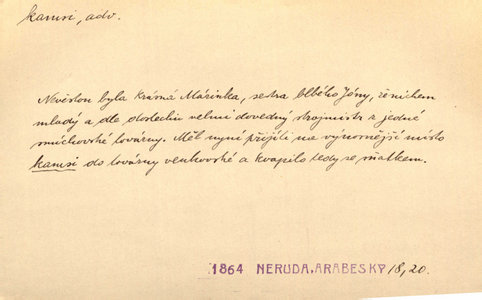 kamsi, adv.
Nevěstou byla krásná Márinka, sestra blbého Jóny, ženichem
mladý a dle doslechu velmi dovedný strojmistr z jedné
smíchovské továrny. Měl nyní přijíti na výnosnější místo
kamsi do továrny venkovské a kvapilo tedy se sňatkem.
1864 NERUDA, ARABESKY 18, 20.